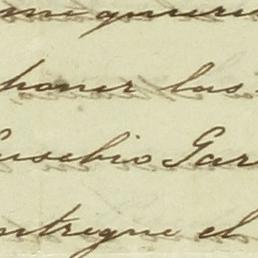 poner las
Eusebio Gar
ntregue el